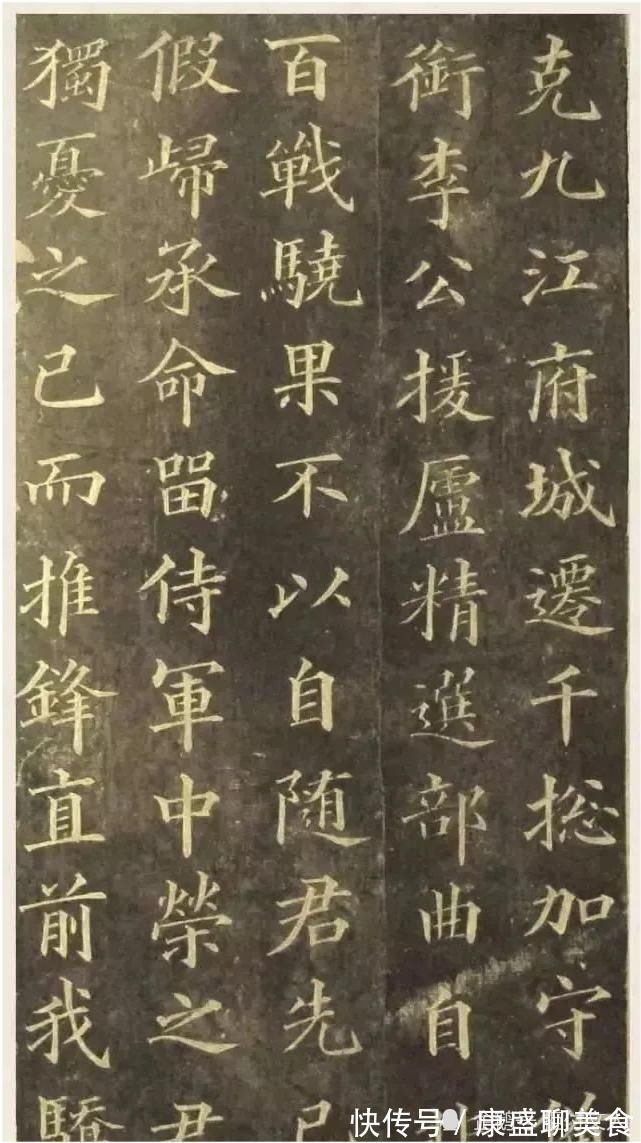 克九江府城遷千捴加守
銜李公援廬精選部曲自
百戰驍果不以自随君先已
假歸承命畱侍軍中榮之君
獨憂之已而推鋒直前我驕
快传号 / 康盛聊美食